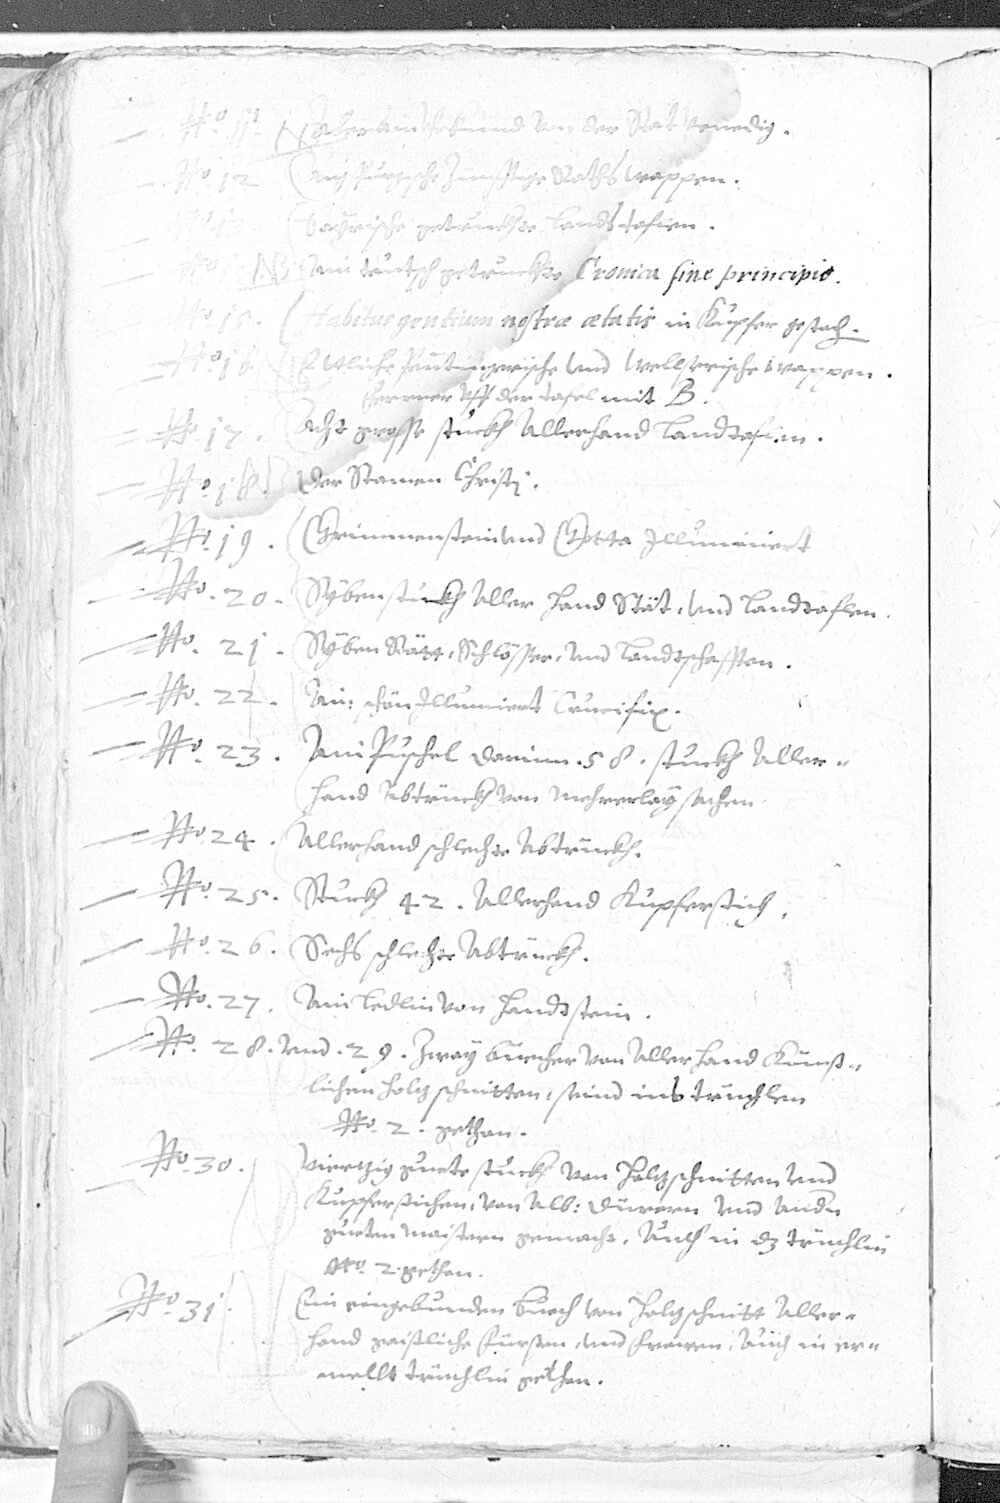 No. 11. von der Stat Venedig.
No. 12 Augspurgische Zunfftige Raths wappen.
Bayrische getruckhte Landtaflen.
No. NB Ain teutsch getruckhte Cronica sine principio.
No. 15. Habitus gentium nostræ ætatis in Kupfer gestoch.
No. 16 Etliche Peutingerische und Welserische wappen.
uff der tafel mit B.
No. 17. Acht grosse stuckh Allerhand Landtaflen.
No. 18. Der Stamen Christi.
No. 19. Grimmenstein und Gotta Illuminiert
No. 20. Syben stuckh Aller hand Stät, und Landtaflen.
No. 21. Syben Stätt, Schlösser, und Landtschafften.
No. 22. Ain schön Illuminiert Crucifix.
No. 23. Ain Puschel darinn. 58. stuckh Aller=
hand Abtruckh von mehrerlay sachen
No. 24. Allerhand schlechte Abtruckh.
No. 25. Stuckh 42. Allerhand Kupferstich.
No. 26. Sechs schlechte Abtruckh.
No. 27. Ain Ledlin von Handtstein.
No. 28. und. 29. Zway büecher von Allerhand Künst=
lichen holtzschnitten, seind ins truchlen
No. 2. gethan.
No. 30. Viertzig guete stuckh von Holtzschnitten und
Kupferstichen, von Alb: Dürern und Andn
gueten Maistern gemacht, Auch in dz trüchlin
No. 2. gethan.
No. 31. Ein eingebunden buech von Holtzschnitt Aller=
hand gaistliche fürsten, und frawen, Auch in er=
mellt trüchlin gethan.